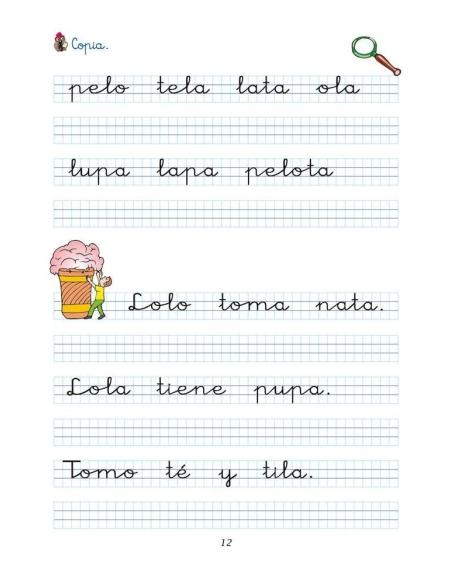 Copia.
pelo tela lata ola
lupa lapa pelota
Lolo toma nata.
Lola tiene pupa.
Tomo té y tila.
12